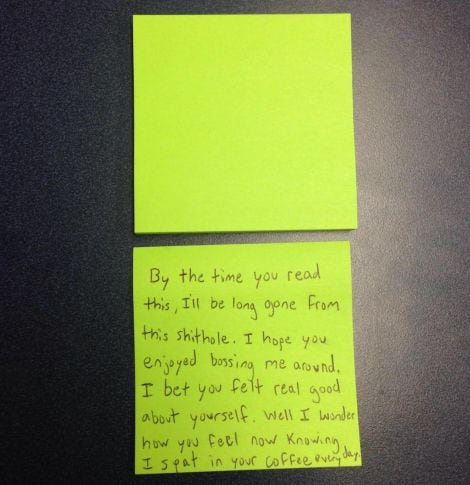 By the time you read
this, I'll be long gone from
this shithole. I hope you
enjoyed bossing me around.
I bet you felt real good
about yourself. Well I wonder
how you feel now knowing
I spat in your coffee every day.